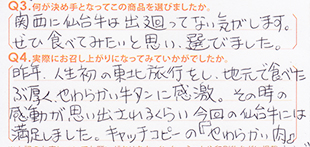 Q3.何が決め手となってこの商品を選びましたか。
関西に仙台牛は出廻ってない気がします。
ぜひ食べてみたいと思い、選びました。
Q4.実際にお召し上がりになってみていかがでしたか。
昨年、人生初の東北旅行をし、地元で食べた
ぶ厚くやわらかい牛タンに感激。その時の
感動が思い出されるくらい今回の仙台牛には
満足しました。キャッチコピーの『やわらかい肉』